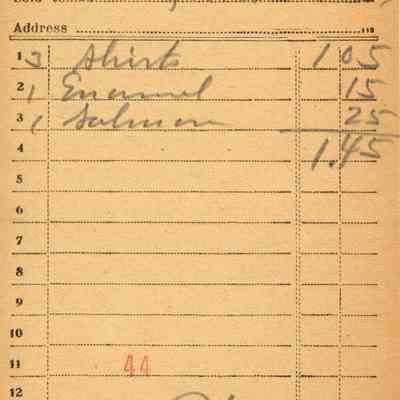 Address
1 3 Shirts 1 05
2 1 Enamel 15
3 1 Salmon 25
4 1.45
5
6
7
8
9
10
11 44
12